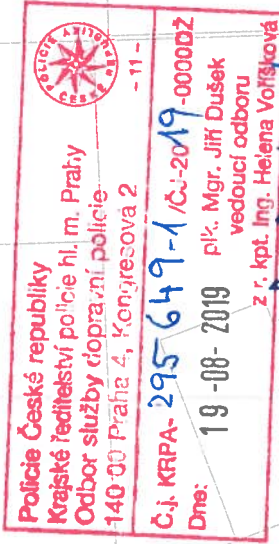 Policie České republiky
Krajské ředitelství policie hl. m. Prahy
Odbor služby dopravní policie
140 00 Praha 4, Kongresová 2
- 11 -
POLICIE ČESKÉ REPUBLIKY
Č.j. KRPA- 295 649-1 /ČJ-2019-0000DŽ
Dne: 19 -08- 2019
plk. Mgr. Jiří Dušek
vedoucí odboru
z r. kpt. Ing. Helena Voříšková